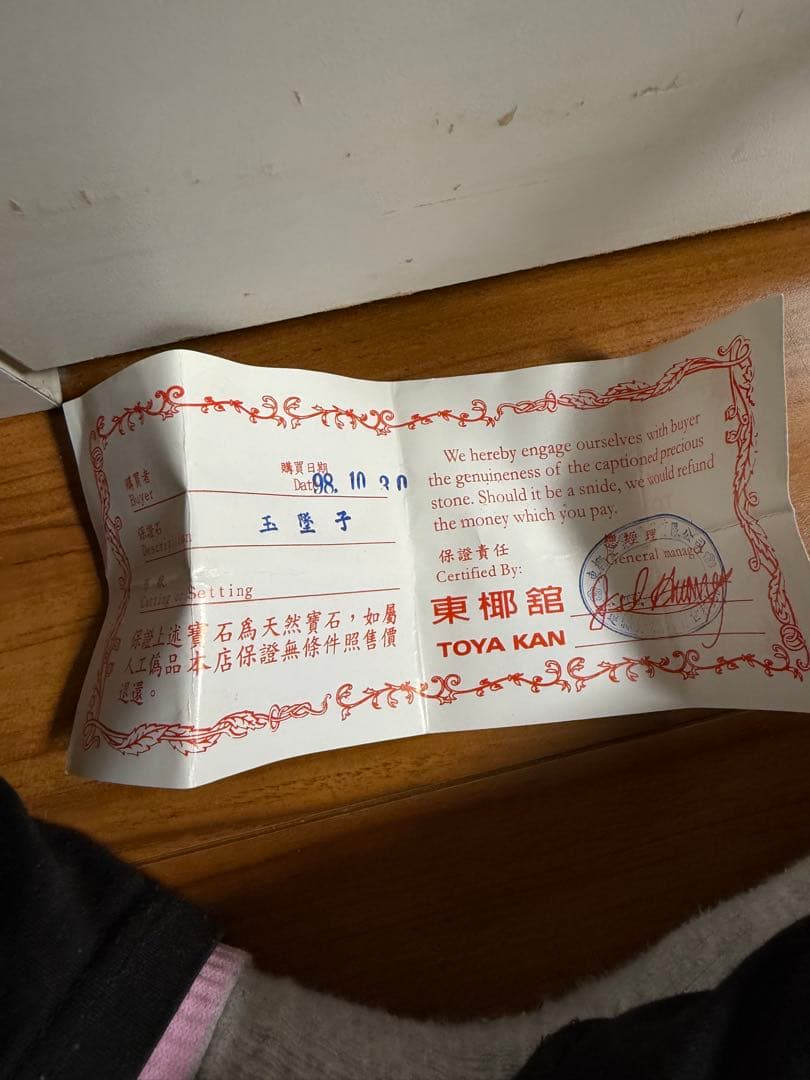 購買者
Buyer
購買日期
Date
98. 10 30
保證石
Description
玉墜子
Setting
保證上述寶石為天然寶石，如屬
人工偽品本店保證無條件照售價
退還。
We hereby engage ourselves with buyer
the genuineness of the captioned precious
stone. Should it be a snide, we would refund
the money which you pay.
保證責任
Certified By:
總經理
General manager
東椰舘
TOYA KAN